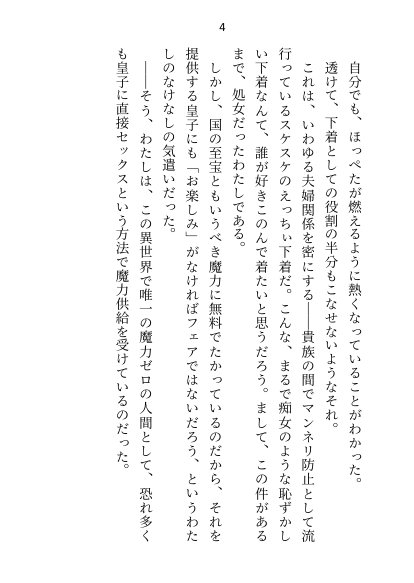 4
自分でも、ほっぺたが燃えるように熱くなっていることがわかった。
透けて、下着としての役割の半分もこなせないようなそれ。
これは、いわゆる夫婦関係を密にする――貴族の間でマンネリ防止として流
行っているスケスケのえっちぃ下着だ。こんな、まるで痴女のような恥ずかし
い下着なんて、誰が好きこのんで着たいと思うだろう。まして、この件がある
まで、処女だったわたしである。
しかし、国の至宝ともいうべき魔力に無料でたかっているのだから、それを
提供する皇子にも「お楽しみ」がなければフェアではないだろう、というわた
しのなけなしの気遣いだった。
――そう、わたしは、この異世界で唯一の魔力ゼロの人間として、恐れ多く
も皇子に直接セックスという方法で魔力供給を受けているのだった。